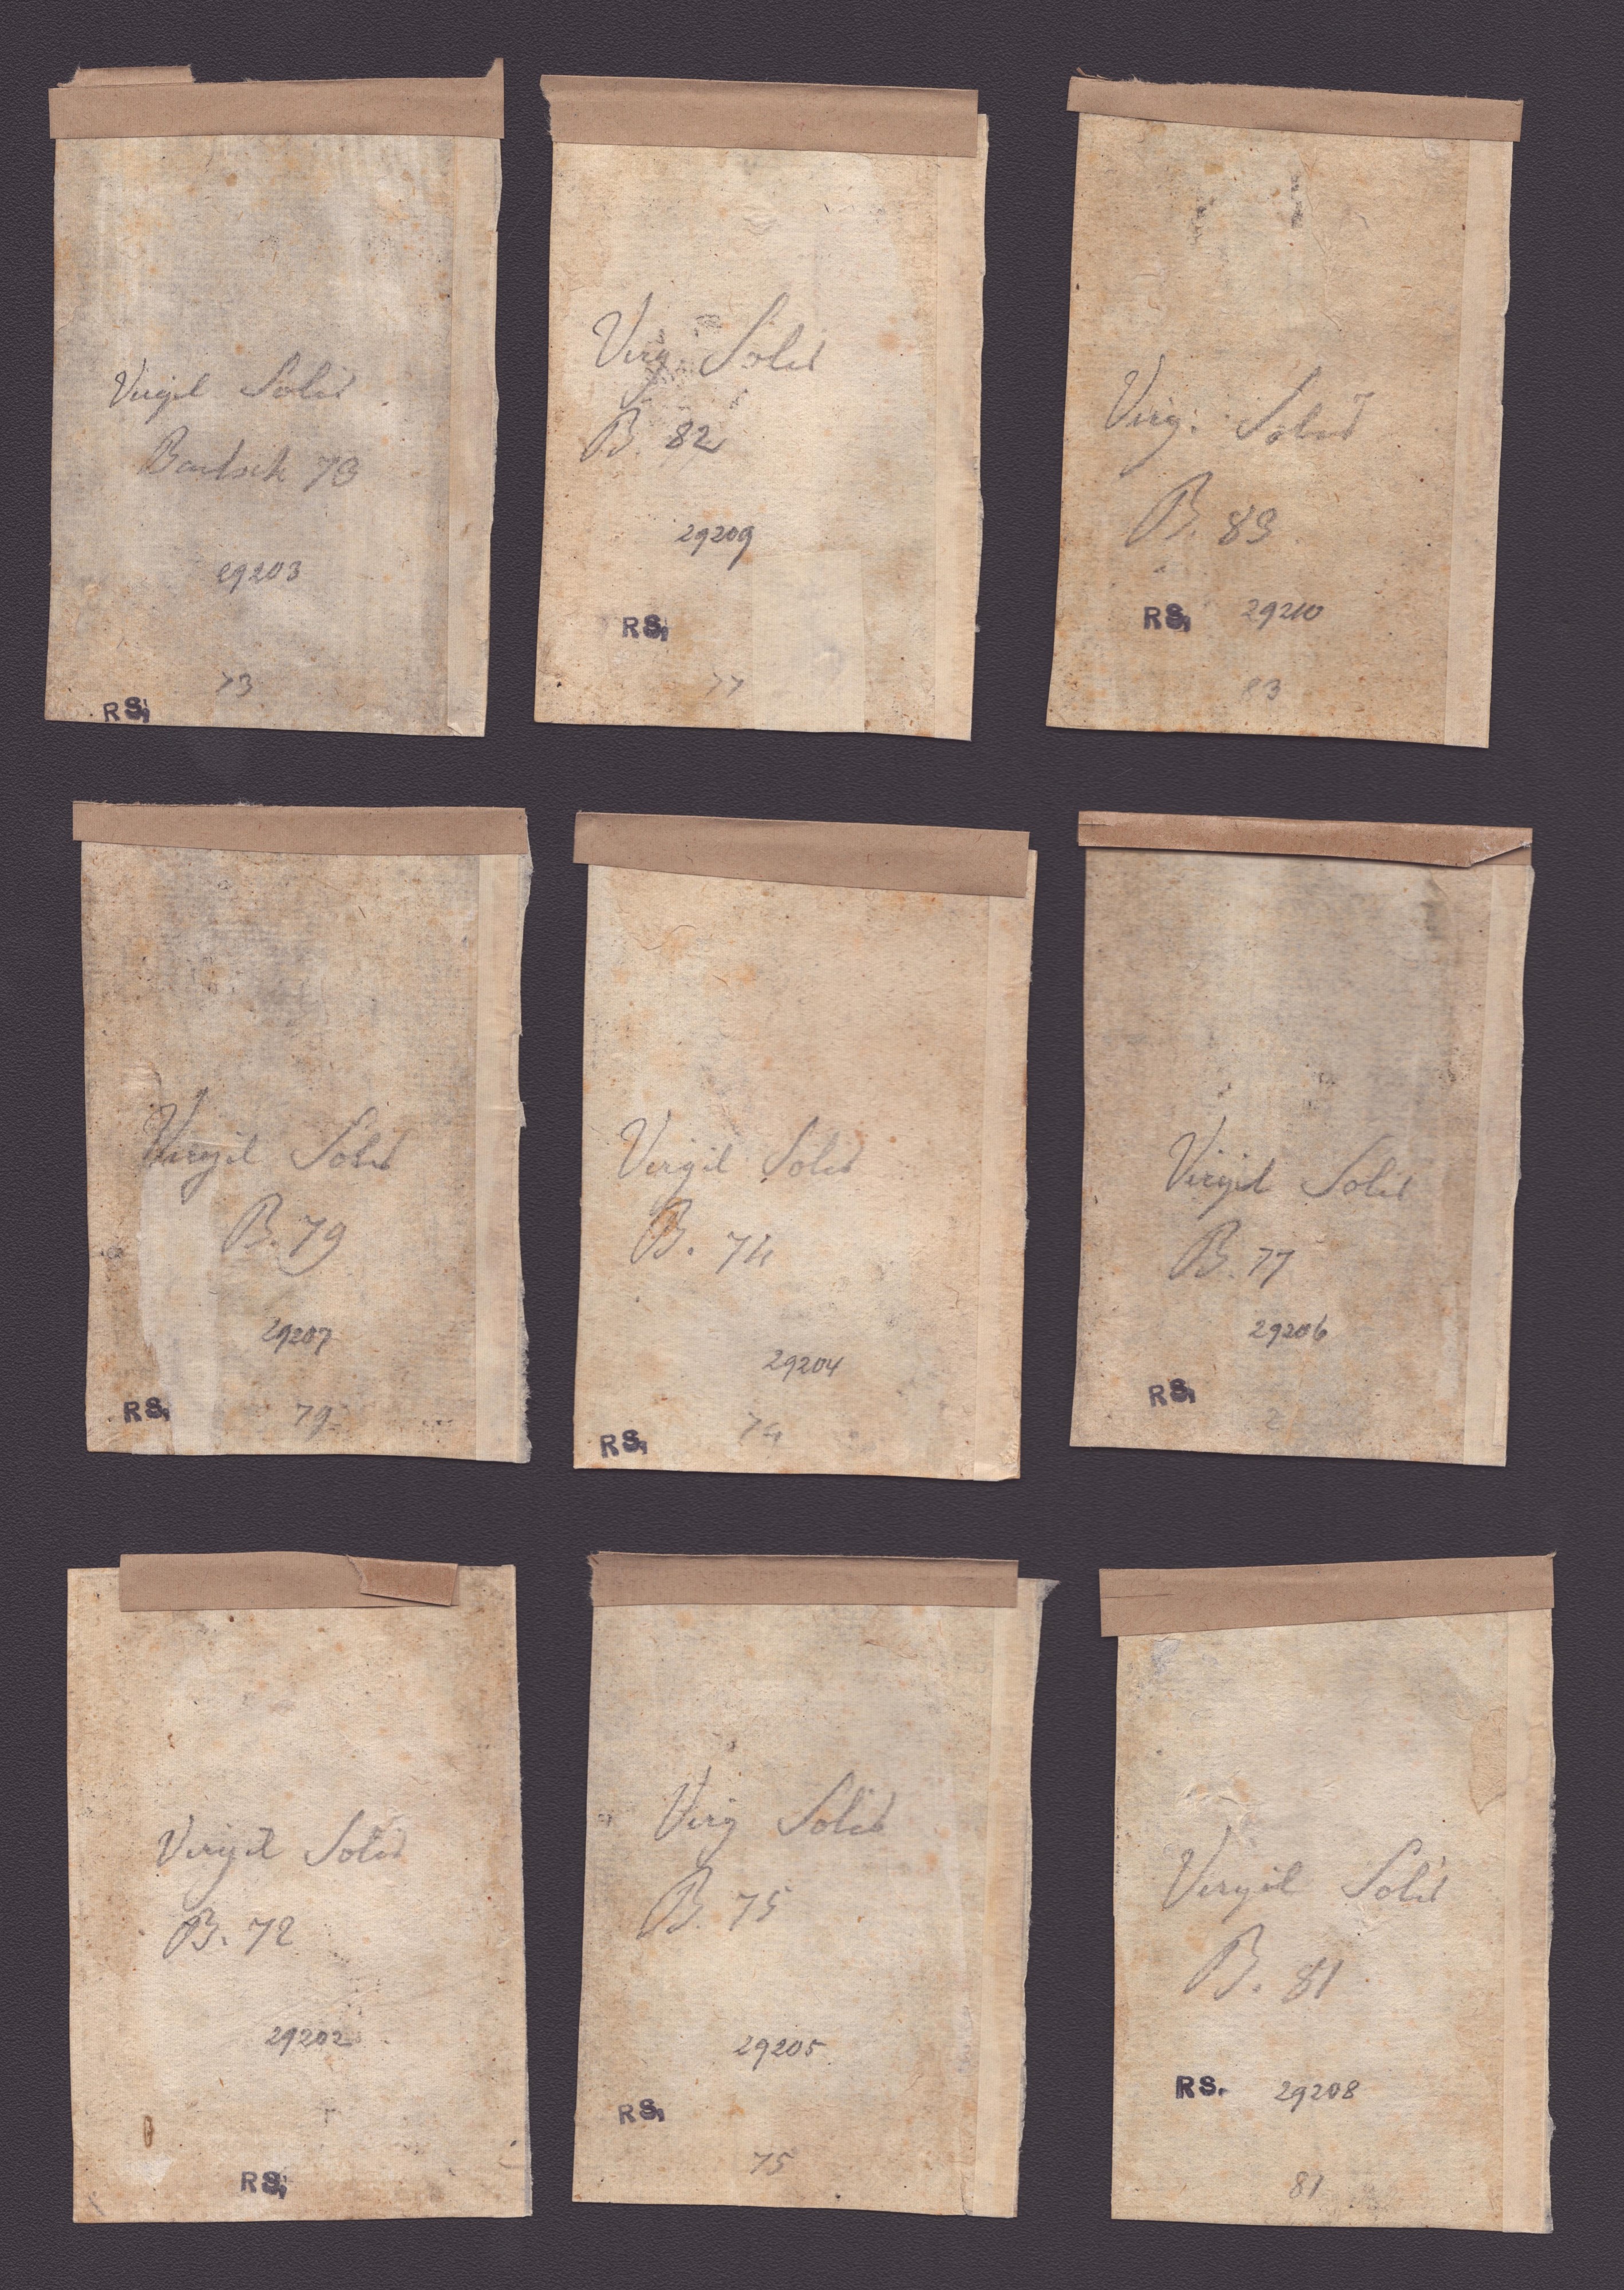 Virgil Solis
Bartsch 73
29203
73
RS,
Virg. Solis
B. 82
29209
RS,
77
Virg: Solis
B. 83
RS, 29210
83
Virgil Solis
B. 79
29207
RS, 79
Virgil Solis
B. 74
29204
RS, 74
Virgil Solis
B. 77
29206
RS,
2
Virgil Solis
B. 72
29202
RS,
Virg Solis
B. 75
29205
RS,
75
Virgil Solis
B. 81
RS. 29208
81